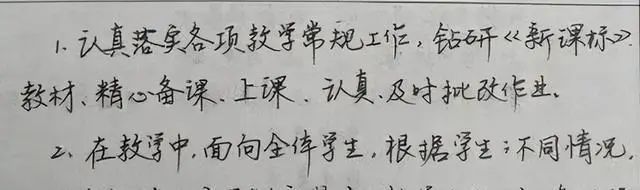 1. 认真落实各项教学常规工作，钻研《新课标》
教材、精心备课、上课、认真、及时批改作业。
2、在教学中，面向全体学生，根据学生不同情况，